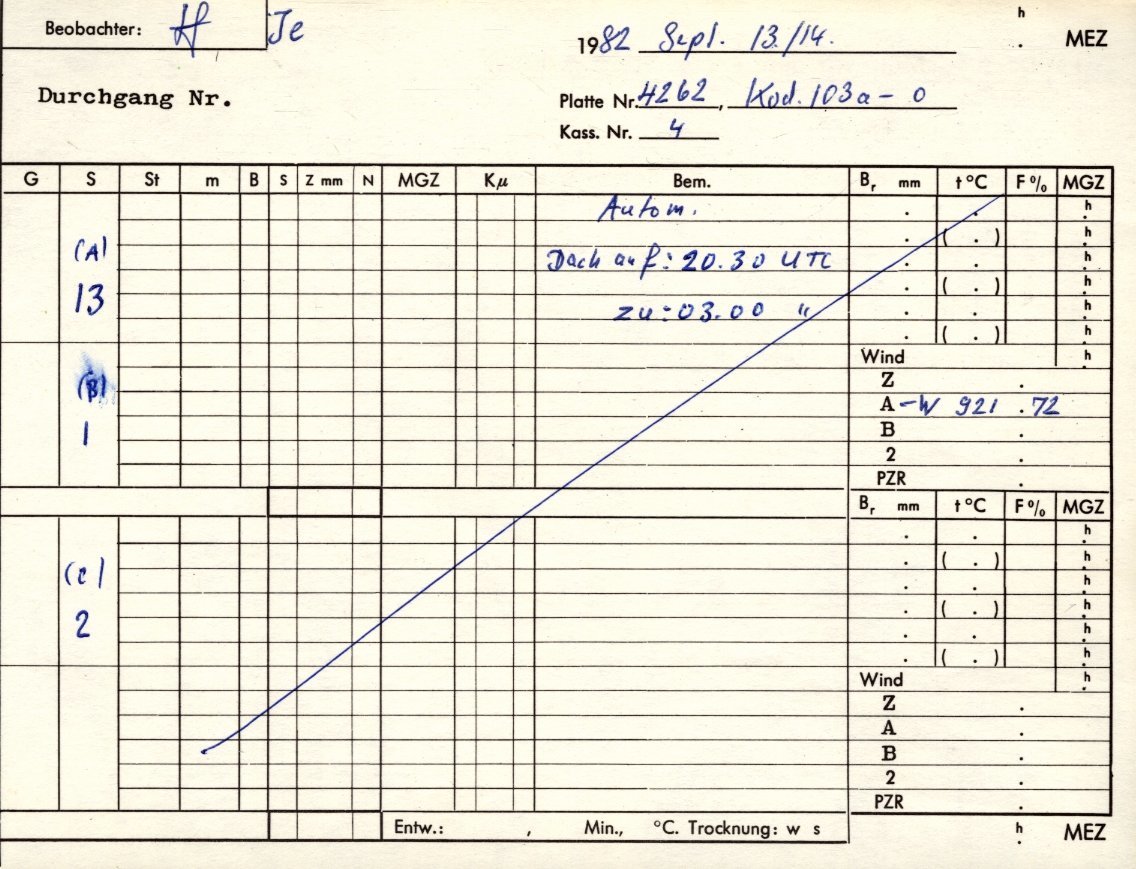 Beobachter: H Je
h
1982 Sept. 13./14. . MEZ
Durchgang Nr.
Platte Nr. 4262, Kod. 103a-O
Kass. Nr. 4
G S St m B S Z mm N MGZ Kµ Bem. Br mm t °C F % MGZ
Autom. . . h
(A) . ( . ) h
Dach auf: 20.30 UTC . . h
13 . ( . ) h
zu: 03.00 " . . h
. ( . ) h
Wind h
(B) Z .
A -W 921 .72
1 B .
2 .
PZR .
Br mm t °C F % MGZ
. . h
. ( . ) h
(C) . . h
2 . ( . ) h
. . h
. ( . ) h
Wind h
Z .
A .
B .
2 .
PZR .
Entw.: , Min., °C. Trocknung: w s
h
. MEZ